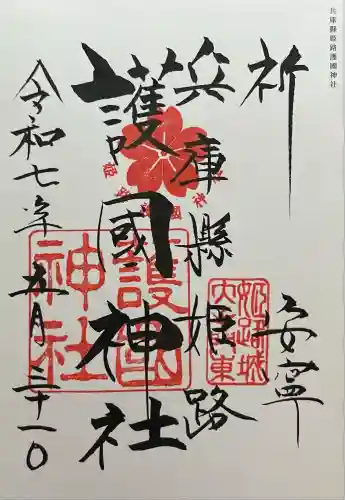 兵庫縣姫路護國神社
祈 安寧
兵庫縣姫路
護國神社
令和七年五月三十一日
護國神社
姫路城